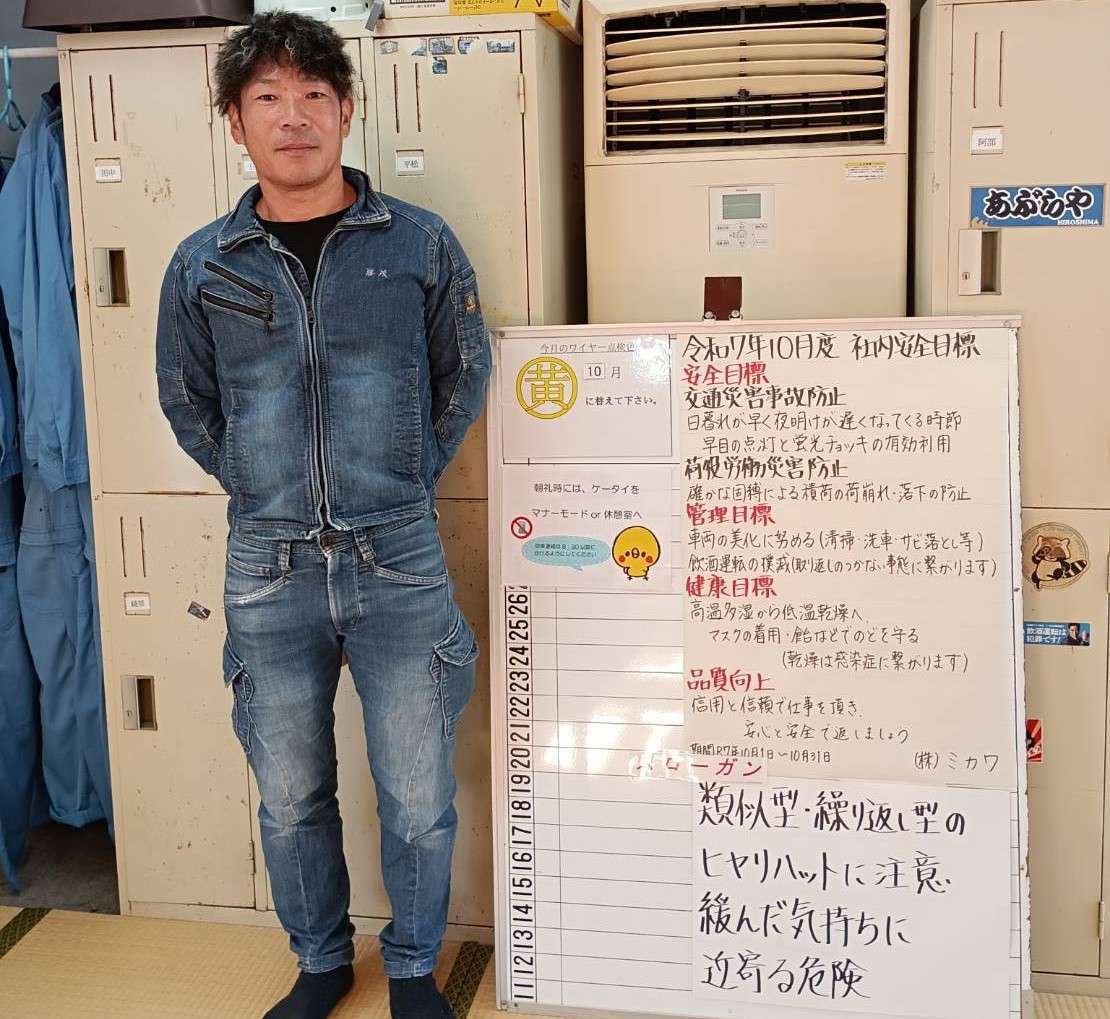 田中
平松
阿部
あぶらや
HIROSHIMA
今月のワイヤー点検色
黄
10 月
に替えて下さい。
朝礼時には、ケータイを
マナーモード or 休憩室へ
令和7年10月度 社内安全目標
安全目標
交通災害事故防止
日暮れが早く夜明けが遅くなってくる時節
早目の点灯と蛍光チョッキの有効利用
荷役労働災害防止
確かな固縛による積荷の荷崩れ・落下の防止
管理目標
車両の美化に努める(清掃・洗車・サビ落とし等)
飲酒運転の撲滅(取り返しのつかない事態に繋がります)
健康目標
高温多湿から低温乾燥へ、
マスクの着用・飴などでのどを守る
(乾燥は感染症に繋がります)
品質向上
信用と信頼で仕事を頂き、
安心と安全で返しましょう
期間R7年10月1日~10月31日
(株)ミカワ
スローガン
類似型・繰り返し型の
ヒヤリハットに注意
緩んだ気持ちに
近寄る危険
26
25
24
23
22
21
20
19
18
17
16
15
14
13
12
11
飲酒運転は
犯罪です!